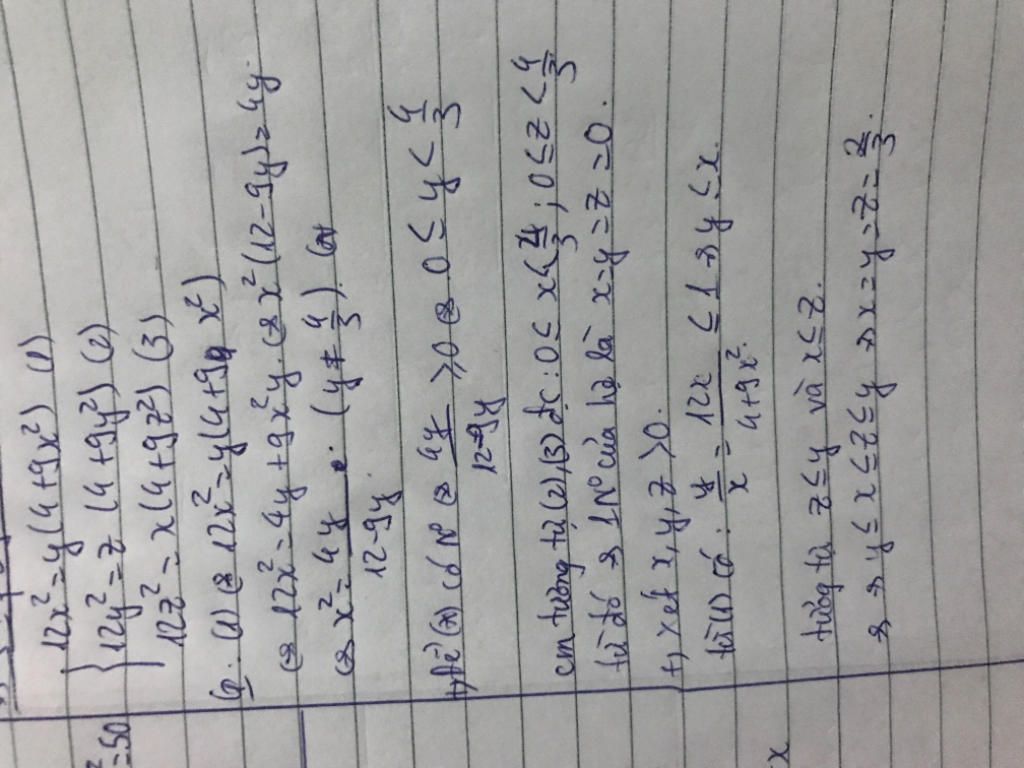 12x² = y(4+9x²) (1)
12y² = z (4+9y²) (2)
12z² = x(4+9z²) (3)
G: (1) ⇔ 12x² = y(4+9x²)
⇔ 12x² = 4y + 9x²y. ⇔ x²(12-9y) = 4y.
⇔ x² = 4y/(12-9y). (y ≠ 4/3). (*)
+, Để (*) có N⁰ ⇔ 4y/(12-9y) ≥ 0 ⇔ 0 ≤ y < 4/3
cm tương tự (2),(3) đc: 0 ≤ x < 4/3 ; 0 ≤ z < 4/3
từ đó → 1 N⁰ của hệ là x=y=z=0.
+, xét x,y,z > 0.
từ (1) có: y/x = 12x/(4+9x²) ≤ 1 → y ≤ x.
tương tự z ≤ y và x ≤ z.
→ y ≤ x ≤ z ≤ y → x=y=z= 2/3.
= 50
x